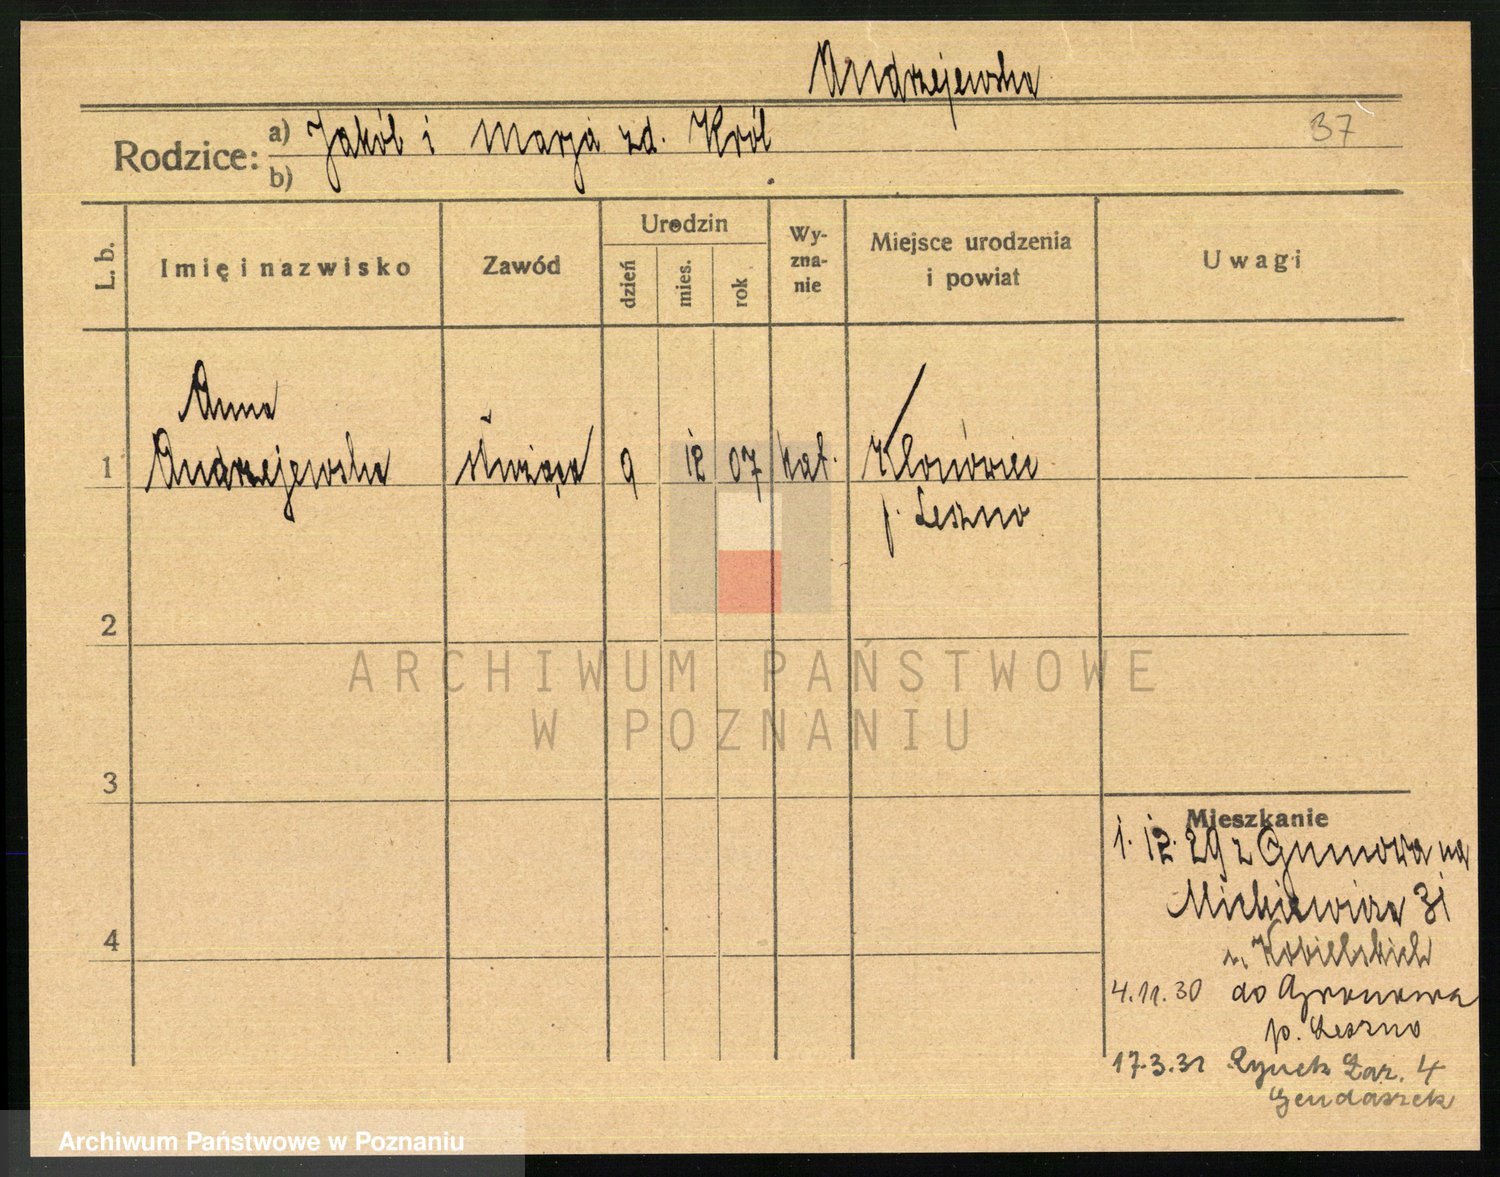 Andrzejewska
37
Rodzice: a) Jakób i Marja zd. Król
b)
L. b. Imię i nazwisko Zawód Urodzin dzień mies. rok Wy-zna-nie Miejsce urodzenia i powiat Uwagi
Anna
1 Andrzejewska służąca 9 12 07 kat. Klonówiec
p. Leszno
2
ARCHIWUM PAŃSTWOWE
W POZNANIU
3
Mieszkanie
1. 12. 29 z na
Mickiewicza 31
u. Kobielskich
4.11.30 do
p. Leszno
17.3.31 Rynek Zar. 4
Archiwum Państwowe w Poznaniu